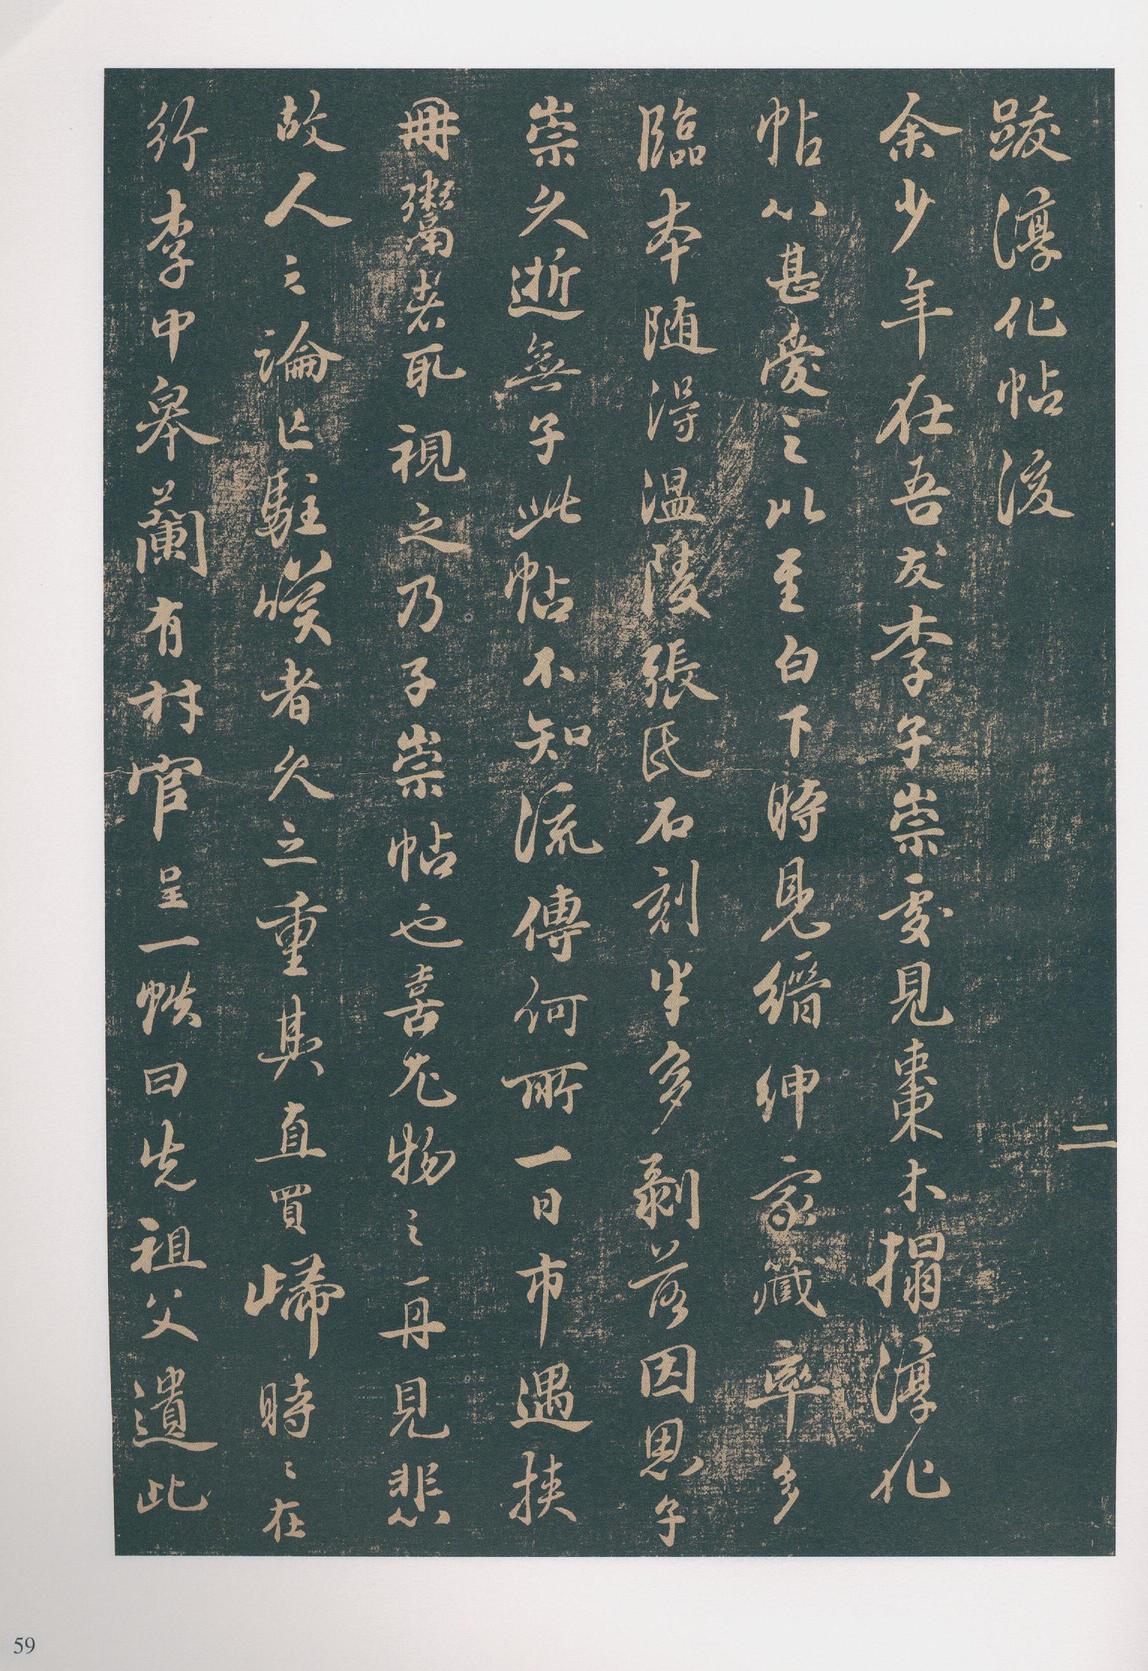 跋淳化帖後
余少年在吾友李子崇處見棗木搨淳化
帖心甚愛之比至白下時見縉紳家藏率多
臨本随得温陵張氏石刻半多剥落因思子
崇久逝無子此帖不知流傳何所一日市遇挟
冊鬻者取視之乃子崇帖也喜尤物之再見悲
故人之淪亡駐嘆者久之重其直買歸時時在
行李中皋蘭有村官呈一帙曰先祖父遺此
二
59